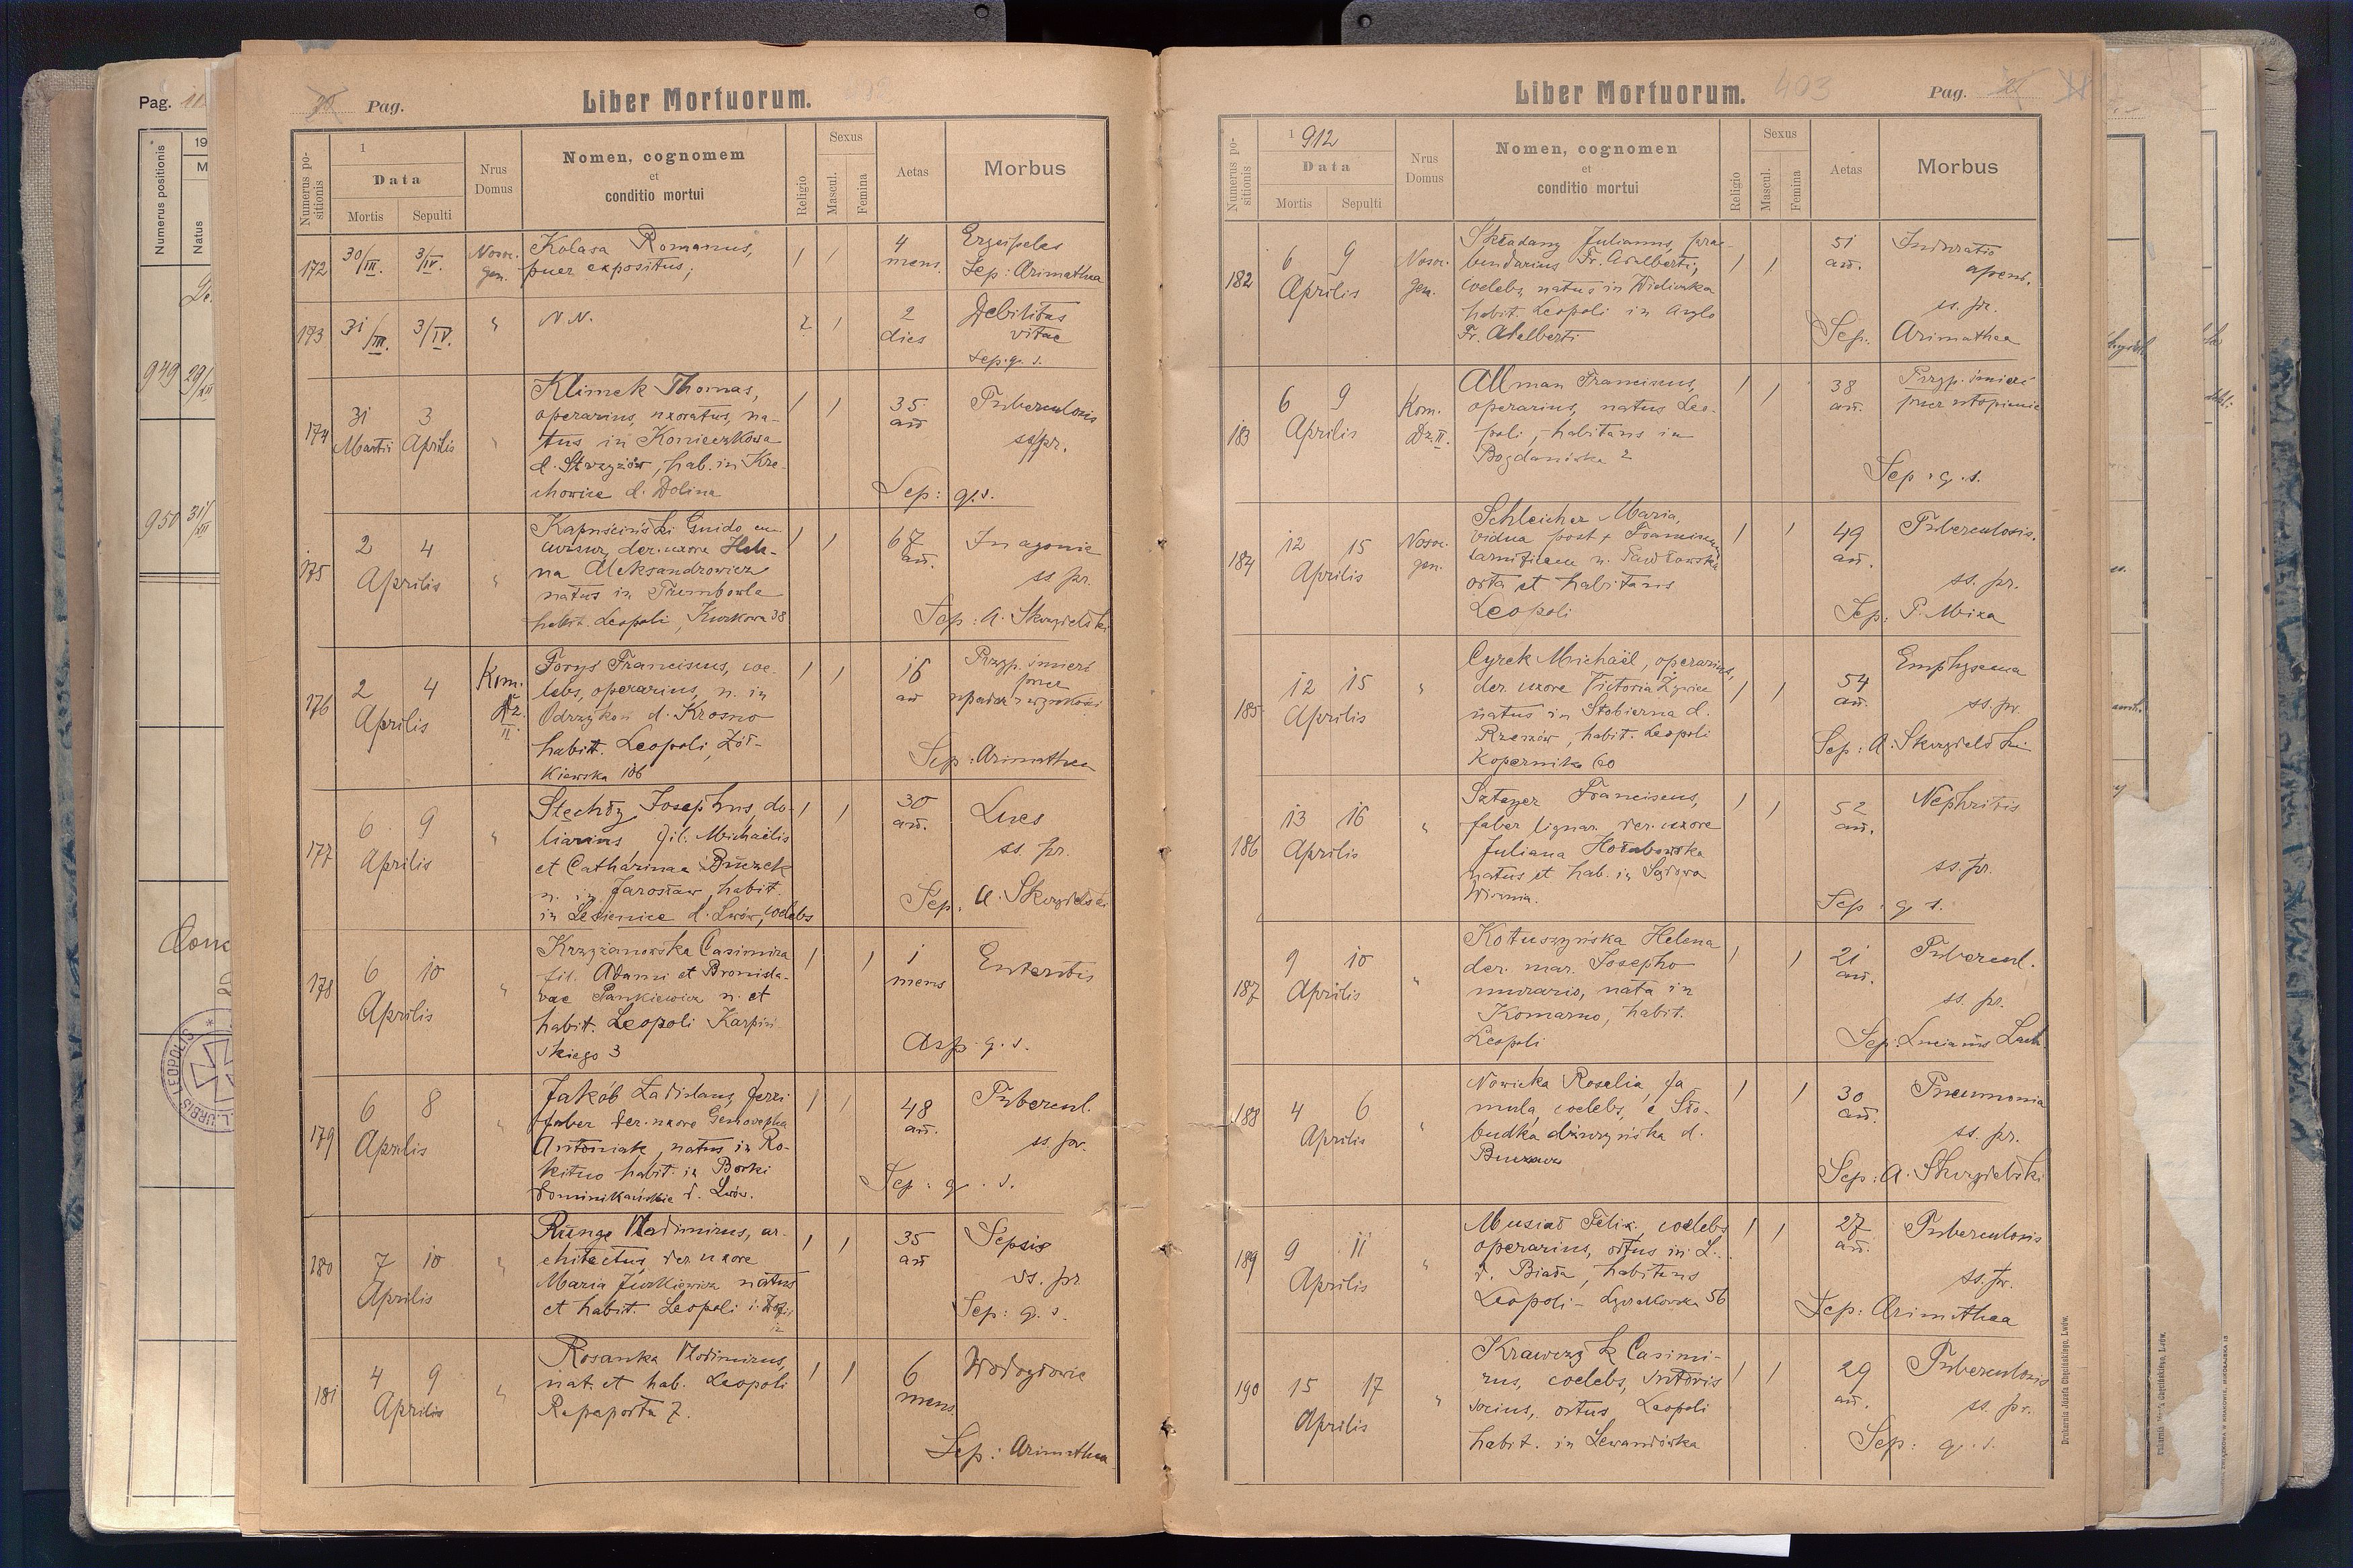 Pag.
Numerus positionis
19
M
Natus
949 29/XII
950 31/XII
Pag.
Liber Mortuorum.
Numerus positionis
1
Data
Mortis
Sepulti
Nrus Domus
Nomen, cognomem
et
conditio mortui
Religio
Sexus
Mascul.
Femina
Aetas
Morbus
172 30/III. 3/IV. Nosoc. gen.
Kolasa Romanus,
puer expositus;
4 mens.
Erysipelas
Sep: Arimathea
173 31/III. 3/IV. "
N N.
2 dies
Debilitas
vitae
Sep: g. s.
174 31 Martii 3 Aprilis "
Klimek Thomas,
operarius, uxoratus, na-
tus in Konieczkowa
d. Strzyżów, hab. in Kre-
chowice d. Dolina
35 an
Tuberculosis
ss pr.
Sep: g. s.
175 2 4 Aprilis "
Kapuściński Guido
der. uxore Hele-
na Aleksandrowicz
natus in Trembowla
habit. Leopoli, Kurkowa 38
67 an.
In agonia
ss pr.
Sep: A. Skrzydelski
176 2 4 Aprilis Kom. Dz. II.
Forys Franciscus, coe-
lebs, operarius, n. in
Odrzykoń d. Krosno
habit. Leopoli, Żół-
kiewska 106
16 an
Przyp. śmierć
przez
upadek z wysokości
Sep: Arimathea
177 6 9 Aprilis "
Stechły Josephus, do-
liarius fil. Michaëlis
et Catharinae Buczek
n. in Jarosław, habit.
in Lesienice d. Lwów, coelebs
30 an.
Lues
ss. pr.
Sep. A. Skrzydelski
178 6 10 Aprilis "
Krzyżanowska Casimira
fil. Adami et Bronisla-
vae Pankiewicz n. et
habit. Leopoli Karpiń-
skiego 3
1 mens
Enteritis
Asp. g. s.
179 6 8 Aprilis "
Jakób Ladislaus, ferri
faber der. uxore Genovepha
Antoniak, natus in Ro-
kitno habit. in Borki
Dominikańskie d. Lwów.
48 an.
Tubercul.
ss. pr.
Sep: g. s.
180 7 10 Aprilis "
Runge Vladimirus, ar-
chitectus, der. uxore
Maria Jurkiewicz natus
et habit. Leopoli
35 an
Sepsis
ss. pr
Sep: g. s.
181 4 9 Aprilis "
Rosanka Vlodimirus,
nat. et hab. Leopoli
Rapaporta 7.
6 mens
Wodogłowie
Sep: Arimathea
Liber Mortuorum.
403
Pag.
Numerus positionis
1 912
Data
Mortis
Sepulti
Nrus Domus
Nomen, cognomen
et
conditio mortui
Religio
Sexus
Mascul.
Femina
Aetas
Morbus
182 6 9 Aprilis Nosoc. gen.
Składany Julianus, prae-
bendarius Fr. Adalberti,
coelebs, natus in Wieliczka
habit. Leopoli in Asylo
Fr. Adalberti
51 an.
Induratio
ss. pr.
Sep. Arimathea
183 6 9 Aprilis Kom. Dz. II.
Allman Franciscus,
operarius, natus Leo-
poli, habitans in
Bogdanówka 2
38 an.
Przyp. śmierć
przez utopienie
Sep. g. s.
184 12 15 Aprilis Nosoc. gen.
Schleicher Maria,
vidua post + Franciscum
lanificem n. Pawłowska
orta et habitans
Leopoli
49 an.
Tuberculosis.
ss. pr.
Sep: P. Mixa
185 12 15 Aprilis "
Cyrek Michaël, operarius,
der. uxore Victoria
natus in Stobierna d.
Rzeszów, habit. Leopoli
Kopernika 60
54 an.
Emphysema
ss. pr
Sep: A. Skrzydelski
186 13 16 Aprilis "
Sztayer Franciscus,
faber lignar. der. uxore
Juliana Hołubowska
natus et hab. in Sądowa
Wisznia.
52 an.
Nephritis
ss. pr.
Sep. g. s.
187 9 10 Aprilis "
Kotuszyńska Helena
der. mar. Josepho
murario, nata in
Komarno, habit.
Leopoli
21 an.
Tubercul.
ss. pr.
Sep: Lucianus
188 4 6 Aprilis "
Nowicka Rosalia, fa
mula, coelebs, e Sło-
budka dżuryńska d.
Buczacz
30 an.
Pneumonia
ss. pr.
Sep: A. Skrzydelski
189 9 11 Aprilis "
Musiał Felix, coelebs
operarius, ortus in L..
d. Biała, habitans
Leopoli - Łyczakowska 56
27 an.
Tuberculosis
ss. pr.
Sep: Arimathea
190 15 17 Aprilis "
Krawczyk Casimi-
rus, coelebs, sutoris
socius, ortus Leopoli
habit. in Lewandówka
29 an.
Tuberculosis
ss. pr.
Sep: g. s.
Drukarnia Józefa Chęcińskiego, Lwów.